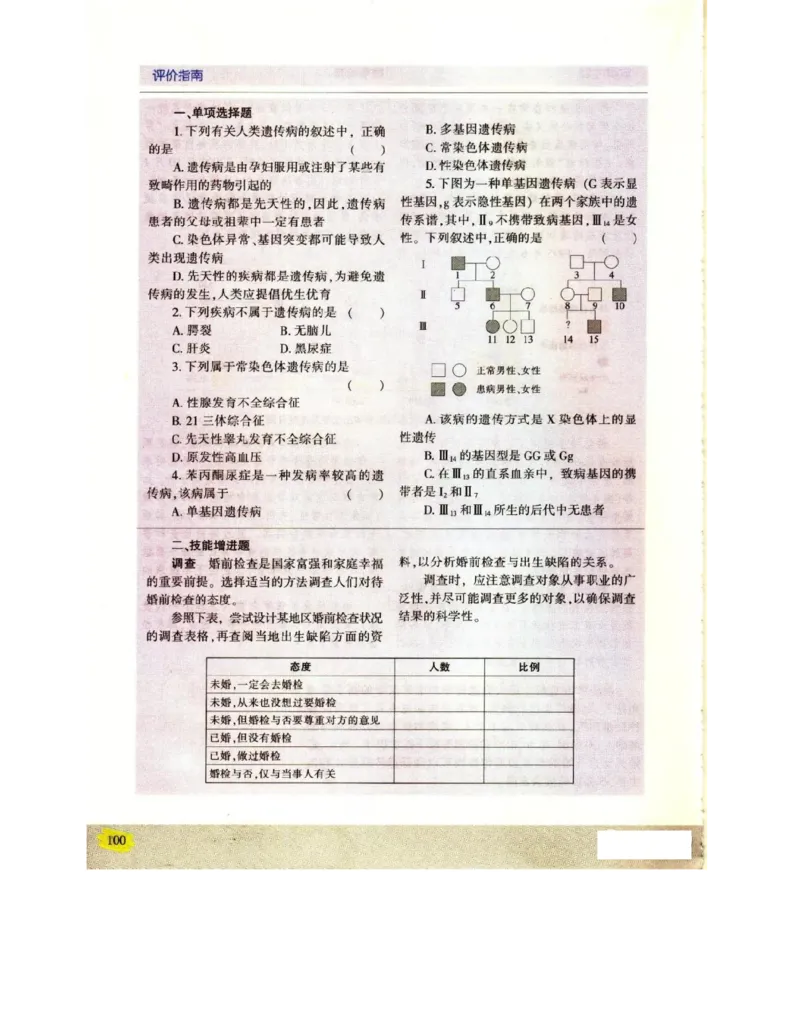 评价指南
一、单项选择题
1. 下列有关人类遗传病的叙述中，正确
的是 （ ）
A. 遗传病是由孕妇服用或注射了某些有
致畸作用的药物引起的
B. 遗传病都是先天性的,因此,遗传病
患者的父母或祖辈中一定有患者
C. 染色体异常、基因突变都可能导致人
类出现遗传病
D. 先天性的疾病都是遗传病,为避免遗
传病的发生,人类应提倡优生优育
2. 下列疾病不属于遗传病的是 （ ）
A. 腭裂 B. 无脑儿
C. 肝炎 D. 黑尿症
3. 下列属于常染色体遗传病的是
（ ）
A. 性腺发育不全综合征
B. 21 三体综合征
C. 先天性睾丸发育不全综合征
D. 原发性高血压
4. 苯丙酮尿症是一种发病率较高的遗
传病,该病属于 （ ）
A. 单基因遗传病
B. 多基因遗传病
C. 常染色体遗传病
D. 性染色体遗传病
5. 下图为一种单基因遗传病（G 表示显
性基因,g 表示隐性基因）在两个家族中的遗
传系谱,其中,Ⅱ9 不携带致病基因,Ⅲ14 是女
性。下列叙述中,正确的是 （ ）
Ⅰ
1 2 3 4
Ⅱ
5 6 7 8 9 10
Ⅲ ?
11 12 13 14 15
正常男性、女性
患病男性、女性
A. 该病的遗传方式是 X 染色体上的显
性遗传
B. Ⅲ14 的基因型是 GG 或 Gg
C. 在Ⅲ13 的直系血亲中，致病基因的携
带者是 I2 和Ⅱ7
D. Ⅲ13 和Ⅲ14 所生的后代中无患者
二、技能增进题
调查 婚前检查是国家富强和家庭幸福
的重要前提。选择适当的方法调查人们对待
婚前检查的态度。
参照下表，尝试设计某地区婚前检查状况
的调查表格,再查阅当地出生缺陷方面的资
料,以分析婚前检查与出生缺陷的关系。
调查时，应注意调查对象从事职业的广
泛性,并尽可能调查更多的对象,以确保调查
结果的科学性。
态度 人数 比例
未婚,一定会去婚检
未婚,从来也没想过要婚检
未婚,但婚检与否要尊重对方的意见
已婚,但没有婚检
已婚,做过婚检
婚检与否,仅与当事人有关
100